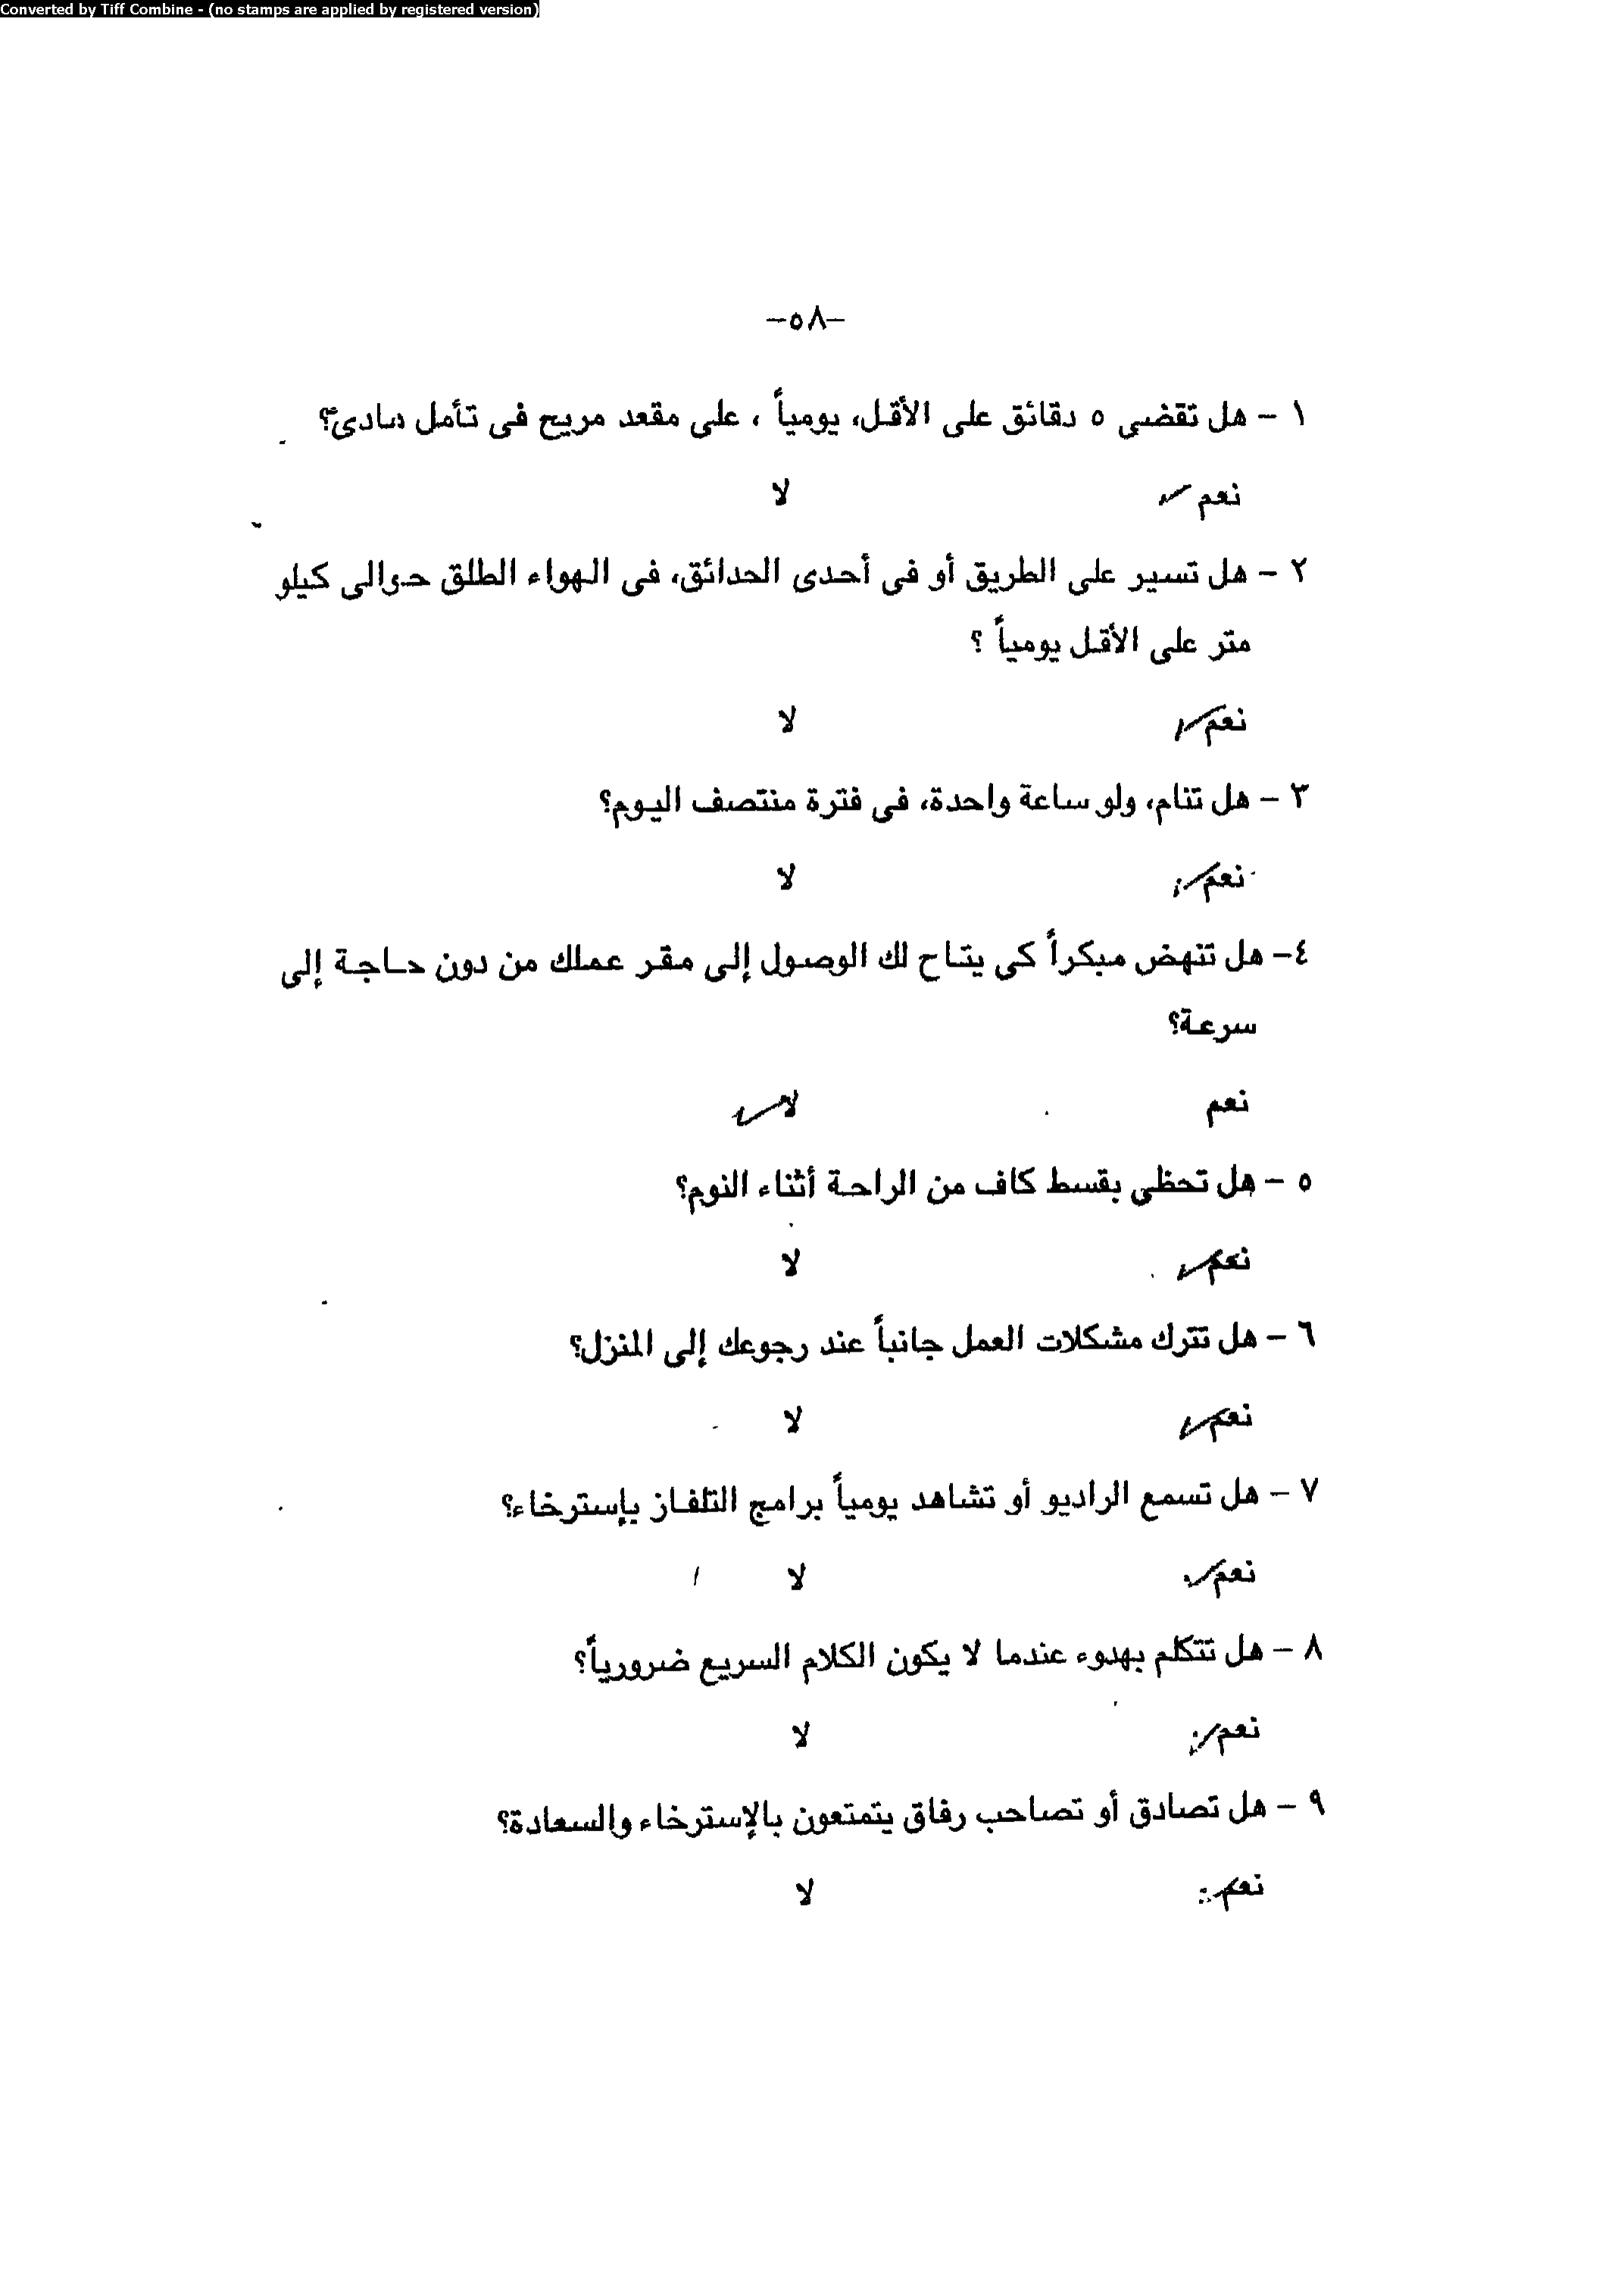 Converted by Tiff Combine - (no stamps are applied by registered version)
-٥٨-
١ - هل تقضى ٥ دقائق على الأقل، يومياً ، على مقعد مريح فى تأمل هادئ؟
نعم ✓ لا
٢ - هل تسير على الطريق أو فى أحدى الحدائق، فى الهواء الطلق حوالى كيلو
متر على الأقل يومياً ؟
نعم ✓ لا
٣ - هل تنام، ولو ساعة واحدة، فى فترة منتصف اليوم؟
نعم ✓ لا
٤- هل تنهض مبكراً كى يتاح لك الوصول إلى مقر عملك من دون حاجة إلى
سرعة؟
نعم لا ✓
٥ - هل تحظى بقسط كاف من الراحة أثناء النوم؟
نعم ✓ لا
٦ - هل تترك مشكلات العمل جانباً عند رجوعك إلى المنزل؟
نعم ✓ لا
٧ - هل تسمع الراديو أو تشاهد يومياً برامج التلفاز بإسترخاء؟
نعم ✓ لا
٨ - هل تتكلم بهدوء عندما لا يكون الكلام السريع ضرورياً؟
نعم ✓ لا
٩ - هل تصادق أو تصاحب رفاق يتمتعون بالإسترخاء والسعادة؟
نعم ✓ لا